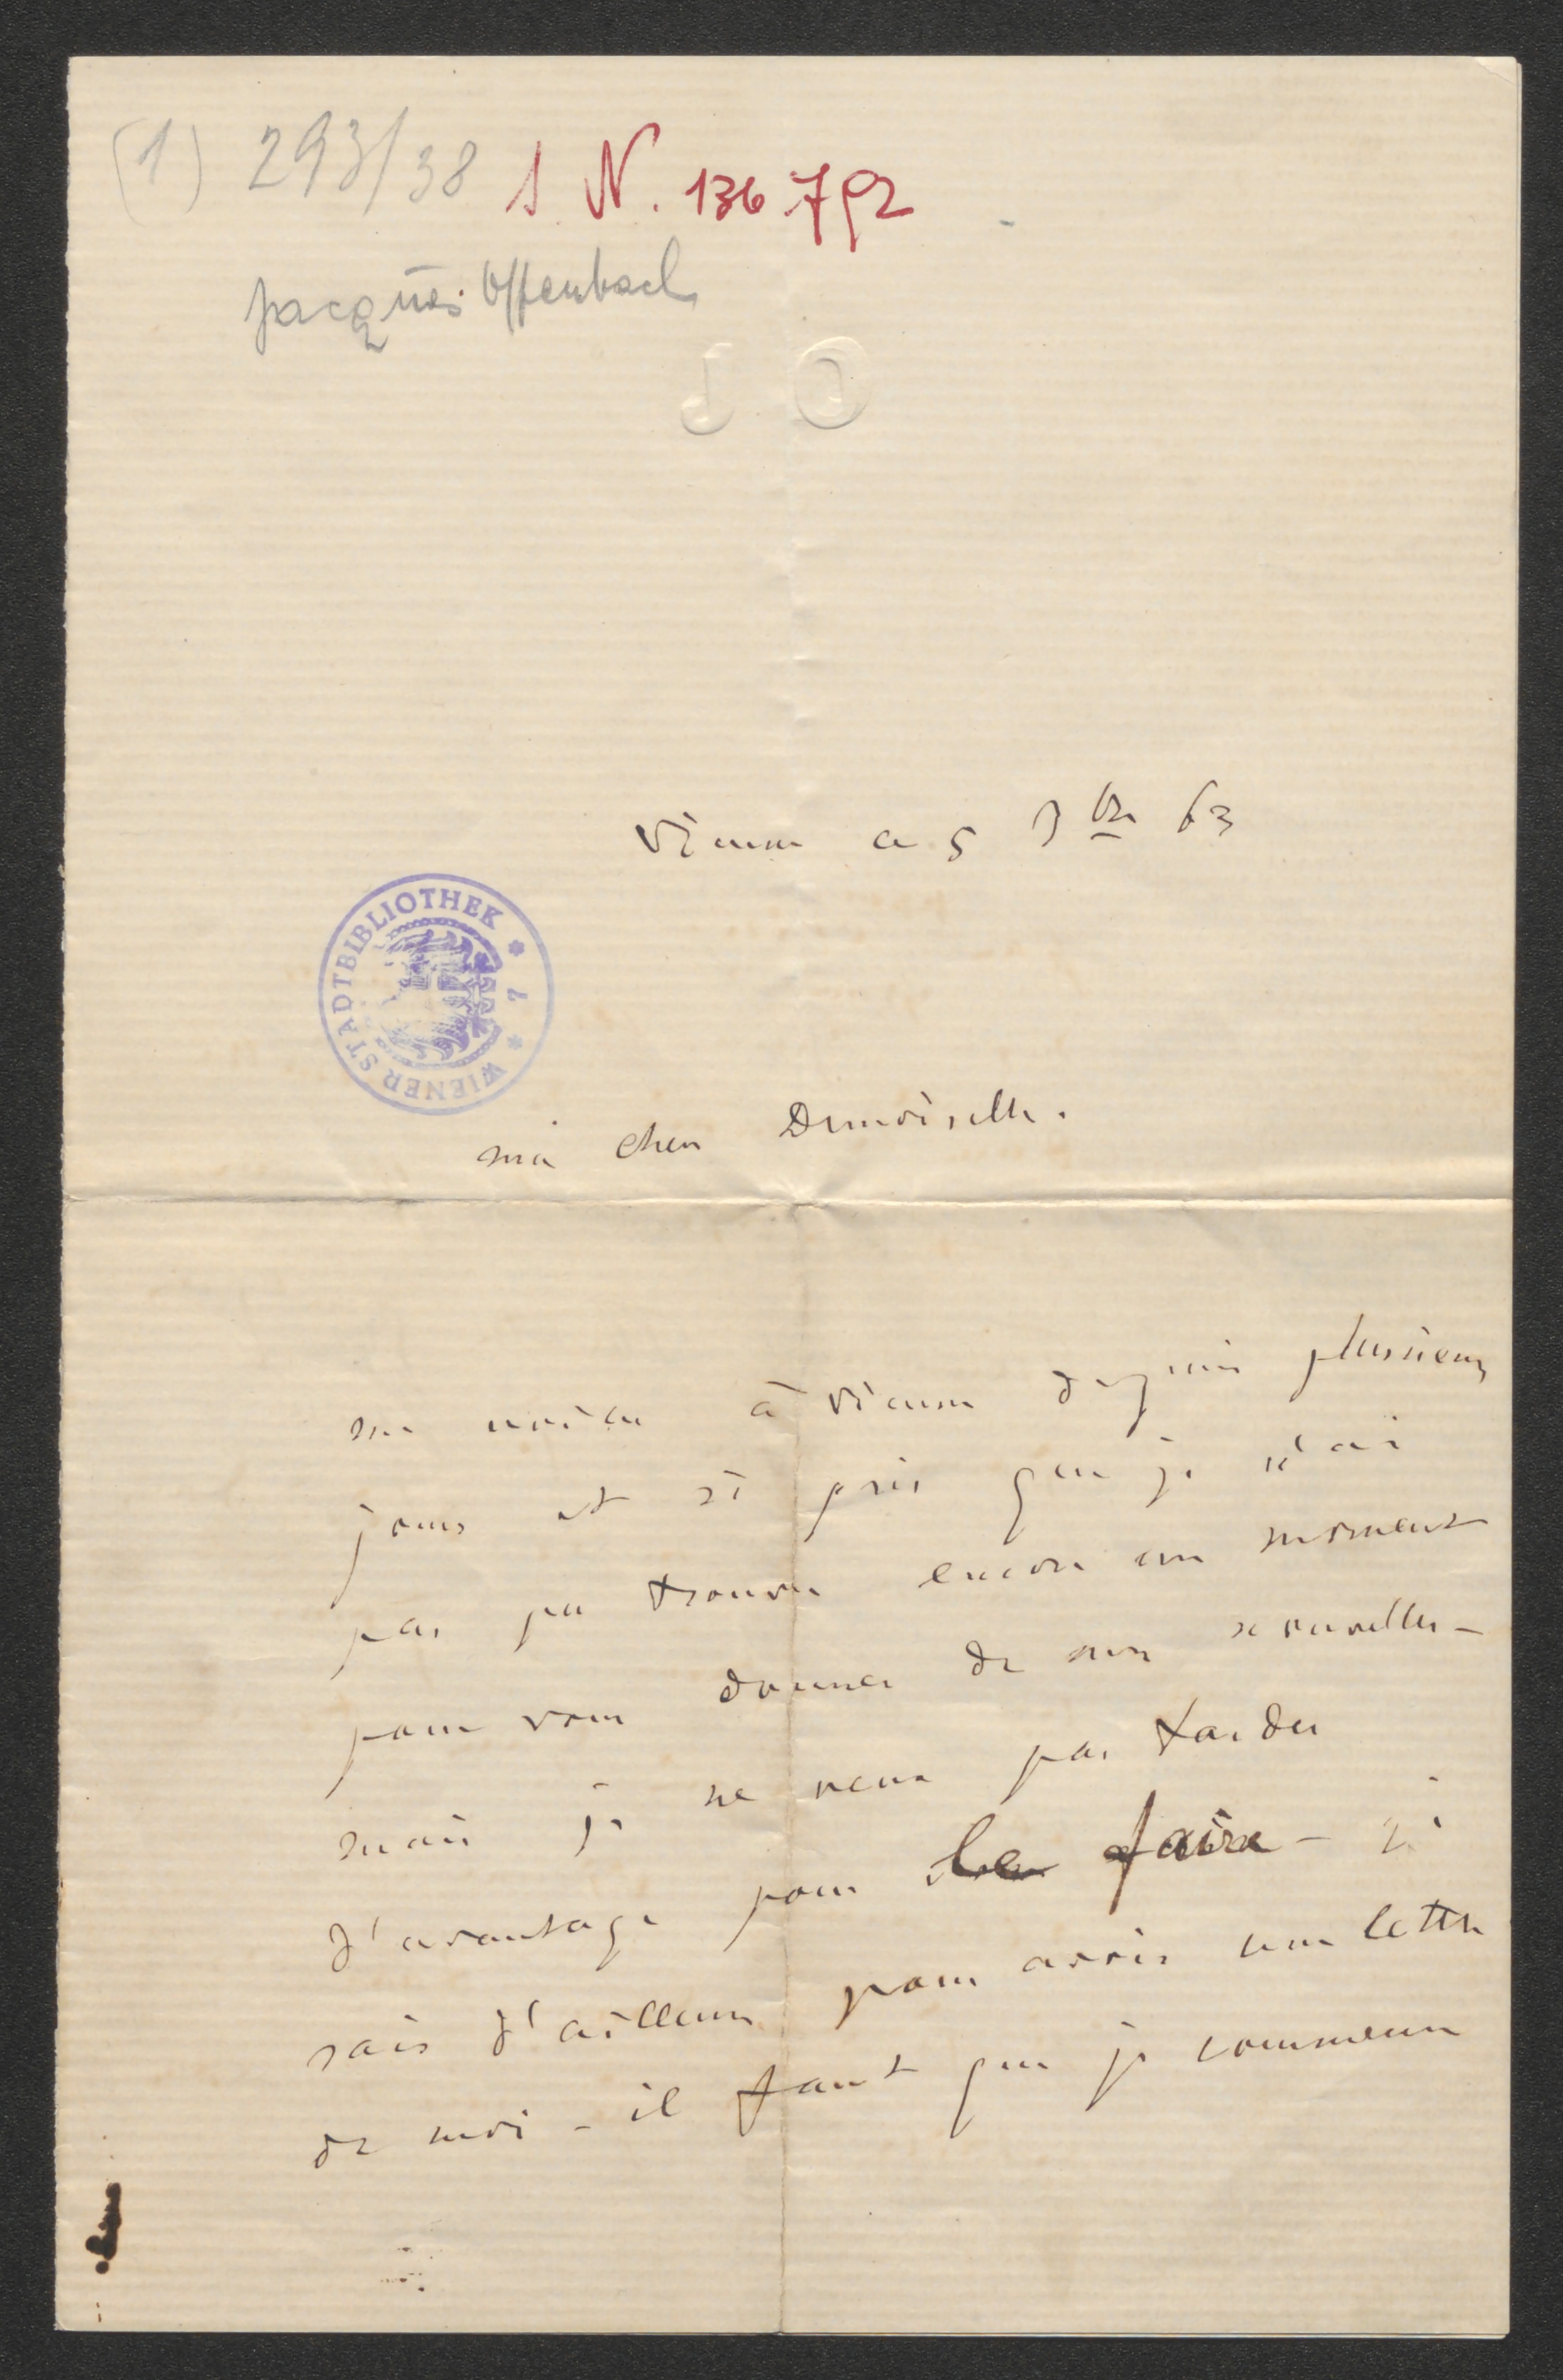 (1) 293/38 I. N. 136792
Jacques Offenbach
J O
Vienne ce 5 9bre 63
WIENER STADTBIBLIOTHEK * 7 *
ma chere Demoiselle.
me voici à Vienne depuis plusieurs
jours et si pris que je n'ai
pas pu trouver encore un moment
pour vous donner de mes nouvelles -
mais je ne veux pas tarder
d'avantage pour le faire -
sais d'ailleurs pour avoir une lettre
de moi - il faut que je commence